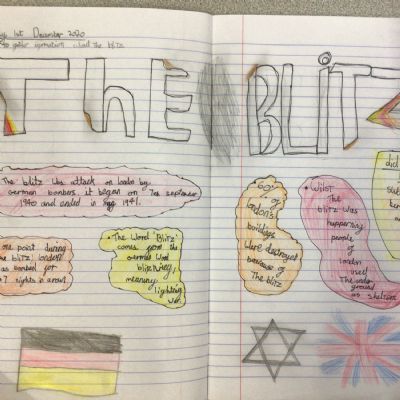 1st December 2020
The BLITZ
The blitz was attack on londo by
German bombers. it began on 7th september
1940 and ended in 1941.
one point during
the blitz london
was bombed for
7 nights in a row
• The Word "Blitz"
comes from the
German Word
blitzkrieg,
meaning
lighting
War.
60% of
London's
buildings
were destroyed
because of
The blitz
• Wilst
The
blitz was
happening
people of
London
used
The unde
ground
as shelters
did